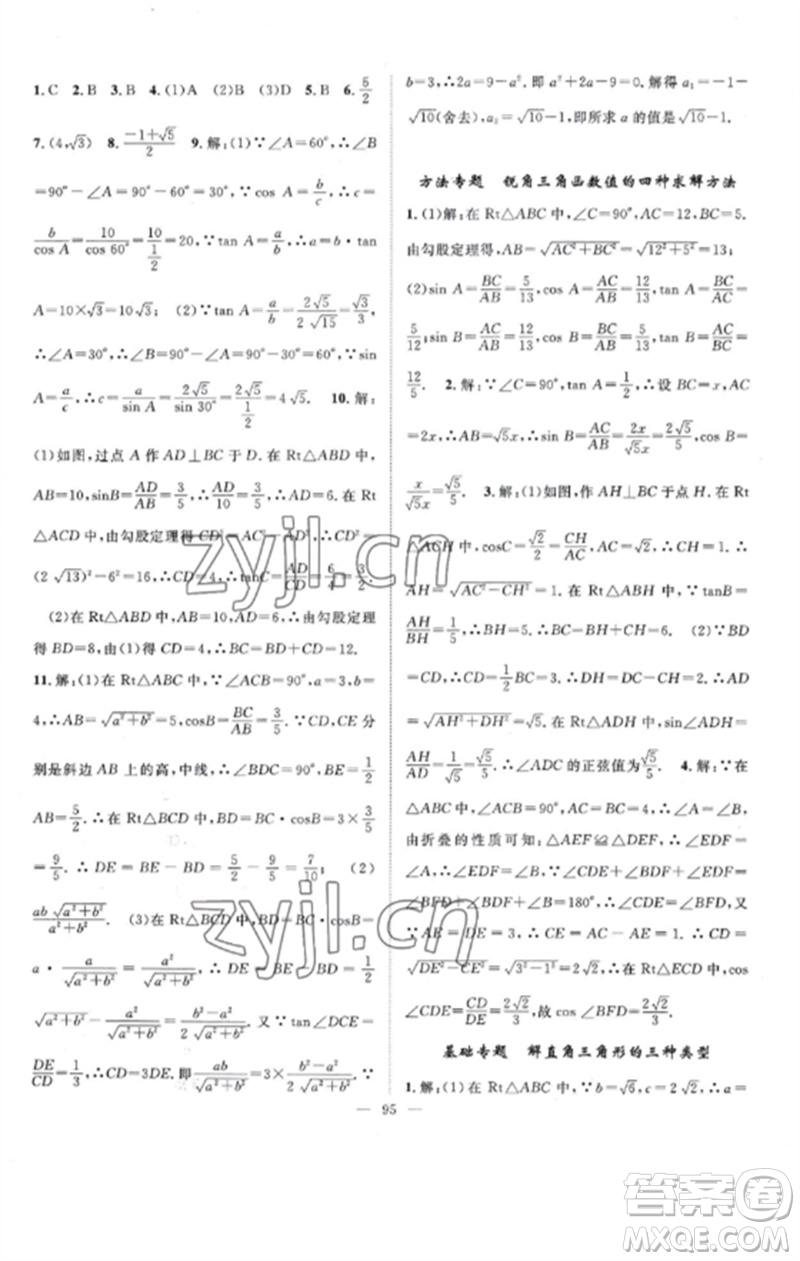 1. C 2. B 3. B 4. (1)A (2)B (3)D 5. B 6. 5/2
7. (4,√3) 8. (-1+√5)/2 9. 解:(1)∵∠A=60°,∴∠B
=90°-∠A=90°-60°=30°,∵cos A=b/c,∴c=
b/cos A=10/cos 60°=10/(1/2)=20,∵tan A=a/b,∴a=b·tan
A=10×√3=10√3. (2)∵tan A=a/b=2√5/2√15=√3/3,
∴∠A=30°,∴∠B=90°-∠A=90°-30°=60°,∵sin
A=a/c,∴c=a/sin A=2√5/sin 30°=2√5/(1/2)=4√5. 10. 解:
(1)如图,过点 A 作 AD⊥BC 于 D. 在 Rt△ABD 中,
AB=10,sinB=AD/AB=3/5,∴AD/10=3/5,∴AD=6. 在 Rt
△ACD 中,由勾股定理得 CD²=AC²-AD²,∴CD²=
(2√13)²-6²=16,∴CD=4,∴tanC=AD/CD=6/4=3/2.
(2)在Rt△ABD 中,AB=10,AD=6,∴由勾股定理
得 BD=8,由(1)得 CD=4,∴BC=BD+CD=12.
11. 解:(1)在 Rt△ABC 中,∵∠ACB=90°,a=3,b=
4,∴AB=√(a²+b²)=5,cosB=BC/AB=3/5. ∵CD,CE 分
别是斜边 AB 上的高,中线,∴∠BDC=90°,BE=1/2
AB=5/2. ∴在 Rt△BCD 中,BD=BC·cosB=3×3/5
=9/5. ∴DE=BE-BD=5/2-9/5=7/10; (2)
ab√(a²+b²)/(a²+b²). (3)在Rt△BCD 中,BD=BC·cosB=
a·a/√(a²+b²)=a²/√(a²+b²), ∴DE=BE-BD=1/2
√(a²+b²)-a²/√(a²+b²)=(b²-a²)/2√(a²+b²). 又∵tan∠DCE=
DE/CD=1/3,∴CD=3DE. 即 ab/√(a²+b²)=3×(b²-a²)/2√(a²+b²). ∵
b=3,∴2a=9-a². 即 a²+2a-9=0. 解得 a₁=-1-
√10(舍去),a₂=√10-1,即所求 a 的值是√10-1.
方法专题 锐角三角函数值的四种求解方法
1. (1)解:在 Rt△ABC 中,∠C=90°,AC=12,BC=5.
由勾股定理得,AB=√(AC²+BC²)=√(12²+5²)=13;
(2)sin A=BC/AB=5/13,cos A=AC/AB=12/13,tan A=BC/AC=
5/12;sin B=AC/AB=12/13,cos B=BC/AB=5/13,tan B=AC/BC=
12/5. 2. 解:∵∠C=90°,tan A=1/2,∴设 BC=x,AC
=2x,∴AB=√5x,∴sin B=AC/AB=2x/√5x=2√5/5,cos B=
x/√5x=√5/5. 3. 解:(1)如图,作 AH⊥BC 于点 H. 在 Rt
△ACH 中,cosC=√2/2=CH/AC,AC=√2,∴CH=1.
AH=√(AC²-CH²)=1. 在 Rt△ABH 中,∵tanB=
AH/BH=1/5,∴BH=5,∴BC=BH+CH=6. (2)∵BD
=CD,∴CD=1/2BC=3. ∴DH=DC-CH=2. ∴AD
=√(AH²+DH²)=√5. 在 Rt△ADH 中,sin∠ADH=
AH/AD=1/√5=√5/5. ∴∠ADC 的正弦值为√5/5. 4. 解:∵在
△ABC 中,∠ACB=90°,AC=BC=4,∴∠A=∠B,
由折叠的性质可知:△AEF≌△DEF,∴∠EDF=
∠A,∴∠EDF=∠B,∵∠CDE+∠EDF+∠BDF=
∠BFD+∠BDF+∠B=180°,∴∠CDE=∠BFD. 又
∵AE=DE=3,∴CE=AC-AE=4-3=1. ∴CD=
√(DE²-CE²)=√(3²-1²)=2√2,∴在 Rt△ECD 中,cos
∠CDE=CD/DE=2√2/3,故 cos ∠BFD=2√2/3.
基础专题 解直角三角形的三种类型
1. 解:(1)在 Rt△ABC 中,∵b=√6,c=2√2,∴a=
— 95 —
zyjl.cn
zyjl.cn
答案卷
MXQE.COM